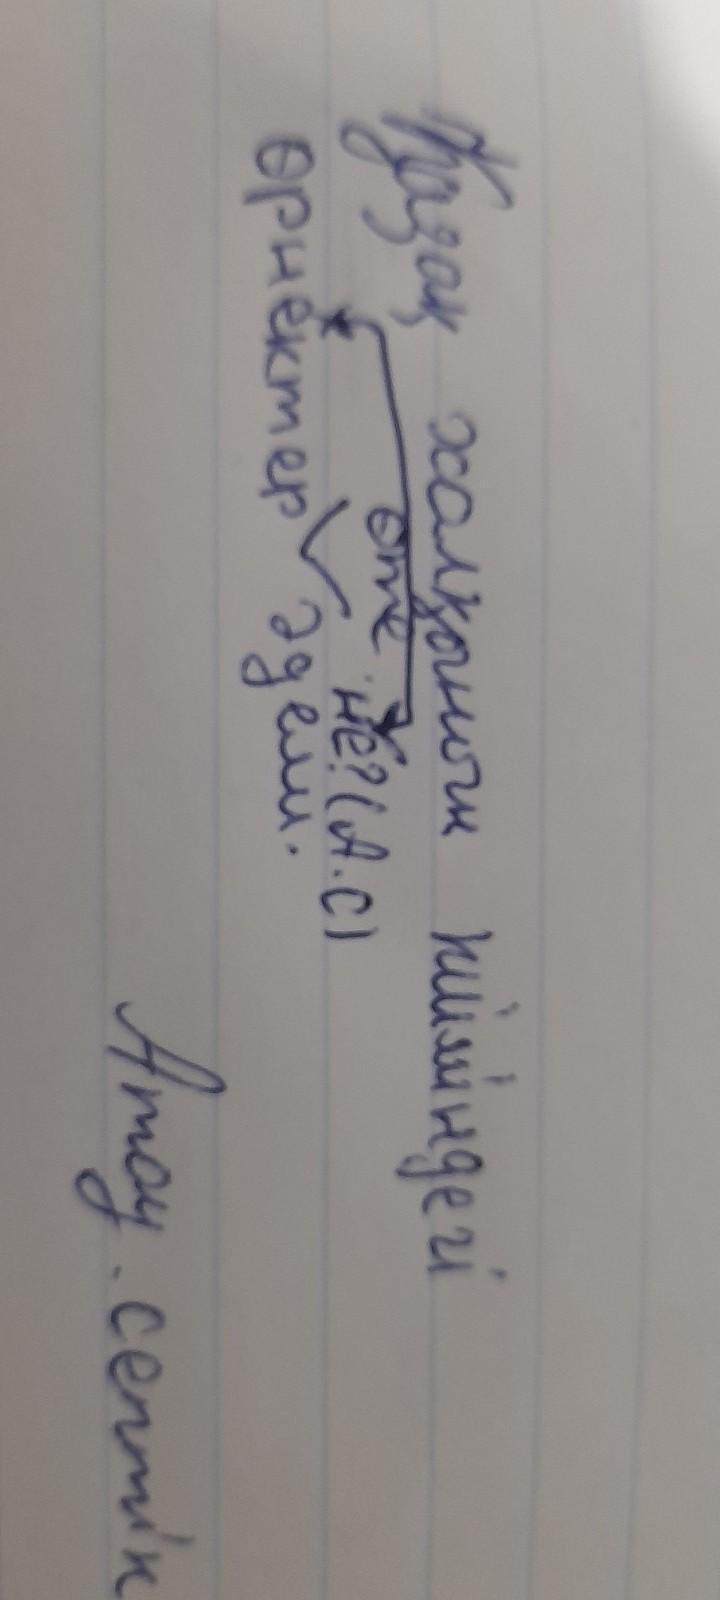 Қазақ халқының киіміндегі
өте не? (А.С)
өрнектер әдемі.
Атау. септік